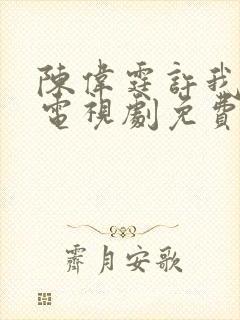 陳偉霆許我
電視劇免費
霽月安歌